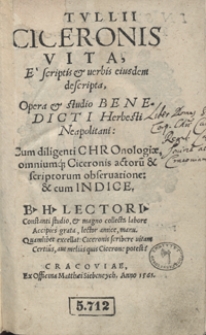 TVLLII
CICERONIS
VITA,
E' scriptis & uerbis eiusdem
descripta,
Opera & studio BENE-
DICTI Herbesti
Neapolitani:
Cum diligenti CHROnologiæ,
omniumq́; Ciceronis actorū &
scriptorum obseruatione:
& cum INDICE,
B. H. LECTORI.
Constanti studio, & magno collecta labore
Accipies grata, lector amice, manu.
Quamlibet excellat Ciceronis scribere uitam
Certius, aut melius quis Cicerone potest?
CRACOVIAE,
Ex Officina Matthæi Siebeneych. Anno
5.712